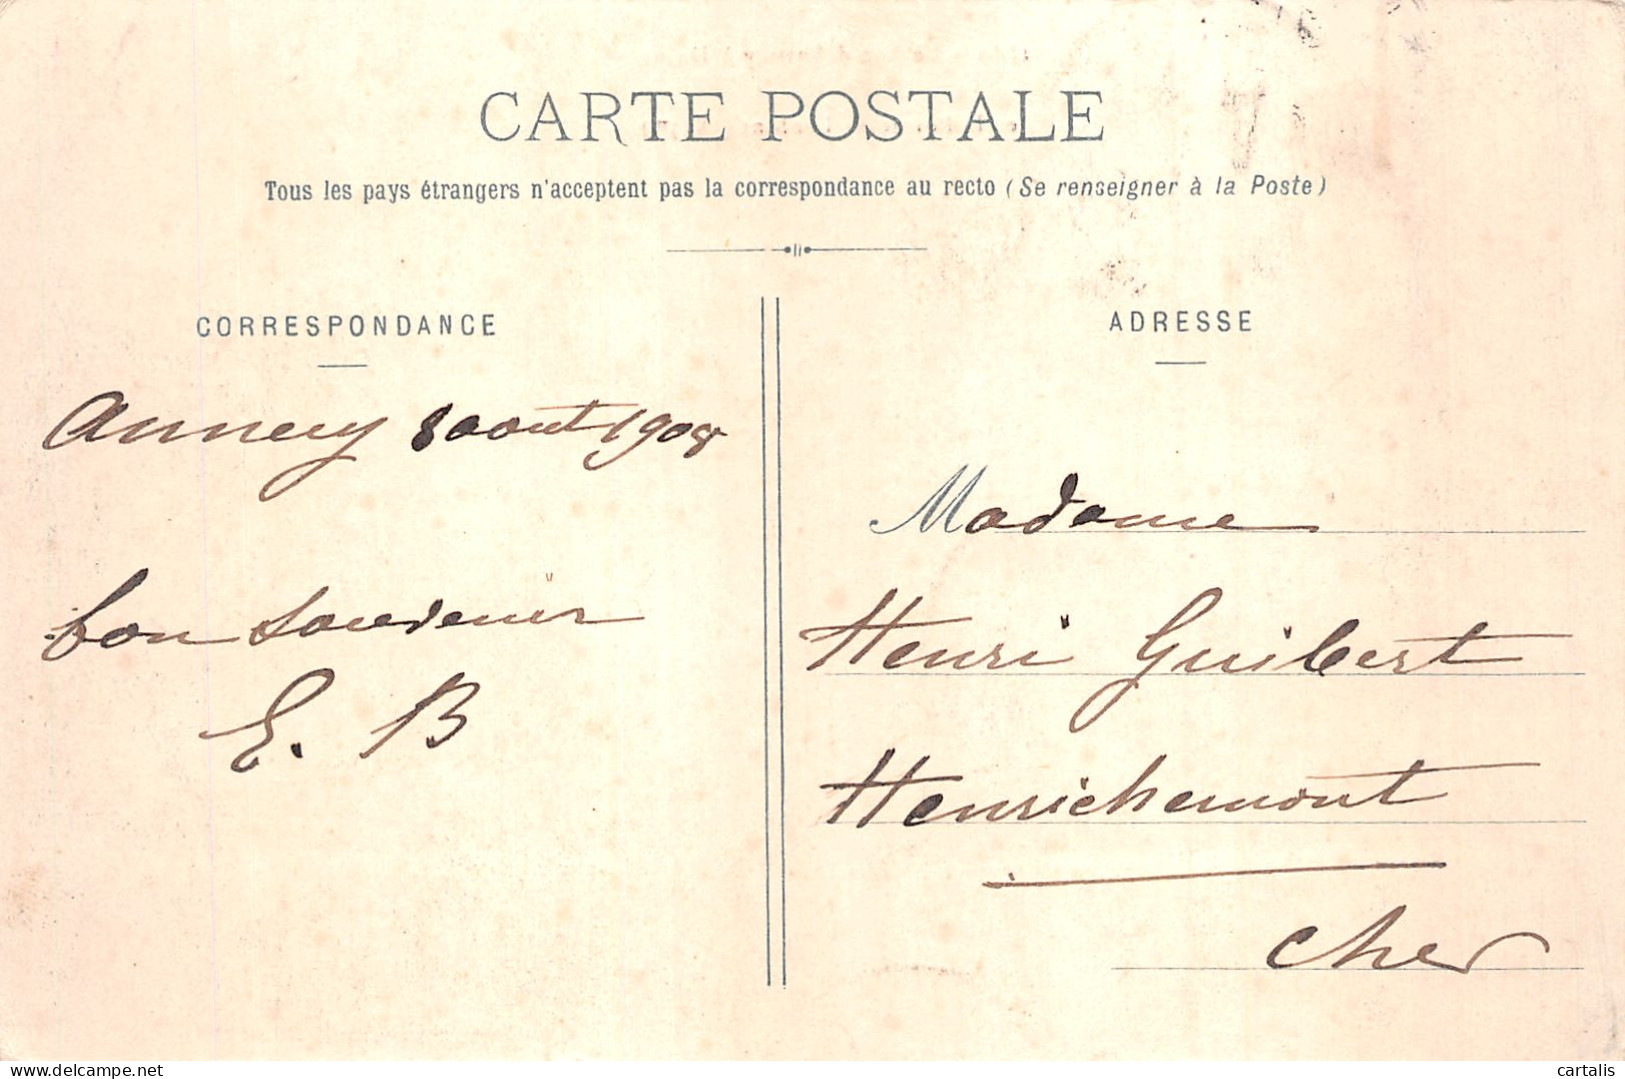 CARTE POSTALE
Tous les pays étrangers n'acceptent pas la correspondance au recto (Se renseigner à la Poste)
CORRESPONDANCE
Annecy 8 aout 1908
bon souvenir
E. B
ADRESSE
Madame
Henri Guibert
Henrichemont
Cher
delcampe.net
cartalis